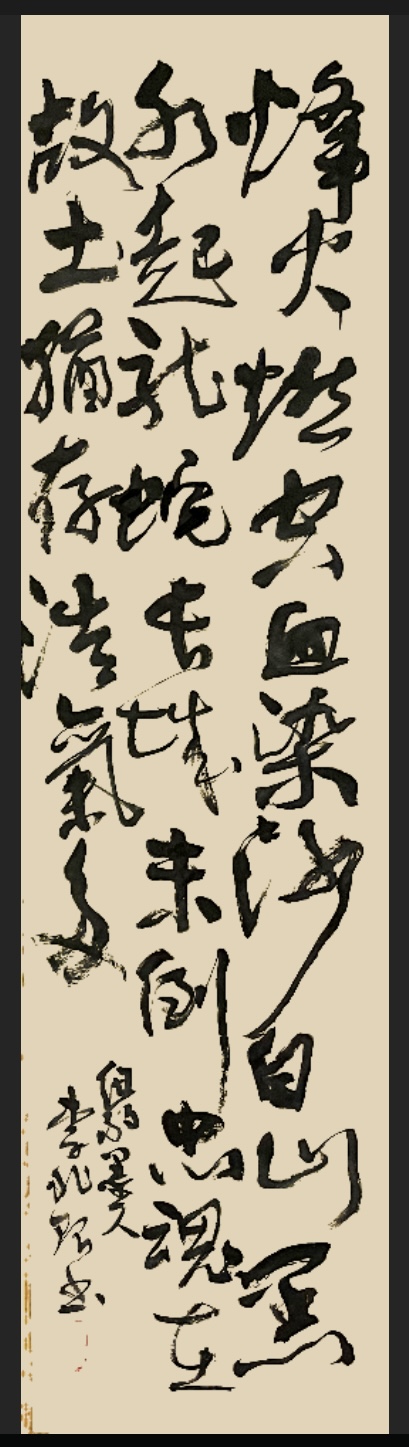 烽火燃空血染沙白山黑
水起龙蛇长城未倒忠魂在
故土犹存浩氣多
墨人
李
书